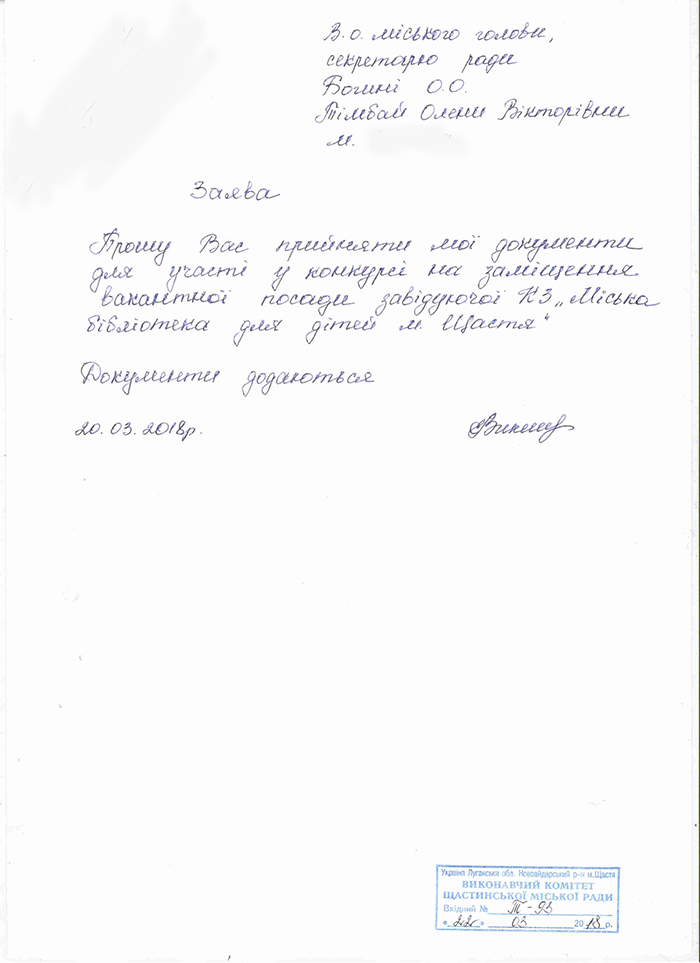 В.о. міського голови,
секретарю ради
Богині О.О.
Тімбай Олени Вікторівни
м.
Заява
Прошу Вас прийняти мої документи
для участі у конкурсі на заміщення
вакантної посади завідуючої КЗ „Міська
бібліотека для дітей м. Щастя“
Документи додаються
20.03.2018р.
Україна Луганська обл. Новоайдарський р-н м.Щастя
ВИКОНАВЧИЙ КОМІТЕТ
ЩАСТИНСЬКОЇ МІСЬКОЇ РАДИ
Вхідний № Т-93
«22» 03 2018 р.